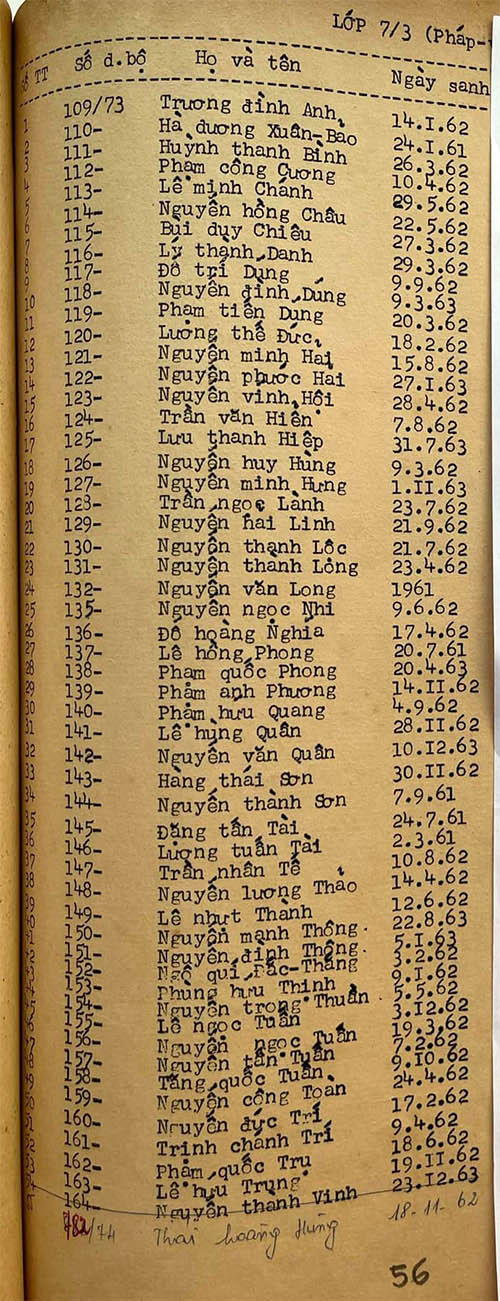 LỚP 7/3 (Pháp-
Số TT Số d.bộ Họ và tên Ngày sanh
1 109/73 Trương đình Anh 14.I.62
2 110- Hà dương Xuân-Bao 24.I.61
3 111- Huỳnh thanh Bình 26.3.62
4 112- Phạm công Cương 10.4.62
5 113- Lê minh Chánh 29.5.62
6 114- Nguyễn hồng Châu 22.5.62
7 115- Bùi duy Chiêu 27.3.62
8 116- Lý thành Danh 29.3.62
9 117- Đỗ trí Dũng 9.9.62
10 118- Nguyễn đình Dũng 9.3.63
11 119- Phạm tiến Dũng 20.3.62
12 120- Lương thế Đức 18.2.62
13 121- Nguyễn minh Hai 15.8.62
14 122- Nguyễn phước Hai 27.I.63
15 123- Nguyễn vinh Hồi 28.4.62
16 124- Trần văn Hiền 7.8.62
17 125- Lưu thanh Hiệp 31.7.63
18 126- Nguyễn huy Hùng 9.3.62
19 127- Nguyễn minh Hưng 1.II.63
20 128- Trần ngọc Lành 23.7.62
21 129- Nguyễn hai Linh 21.9.62
22 130- Nguyễn thành Lộc 21.7.62
23 131- Nguyễn thanh Long 23.4.62
24 132- Nguyễn văn Long 1961
25 135- Nguyễn ngọc Nhi 9.6.62
26 136- Đỗ hoàng Nghĩa 17.4.62
27 137- Lê hồng Phong 20.7.61
28 138- Phạm quốc Phong 20.4.63
29 139- Phạm anh Phương 14.II.62
30 140- Phạm hữu Quang 4.9.62
31 141- Lê hùng Quân 28.II.62
32 142- Nguyễn văn Quân 10.12.63
33 143- Hàng thái Sơn 30.II.62
34 144- Nguyễn thành Sơn 7.9.61
35 145- Đặng tấn Tài 24.7.61
36 146- Lương tuấn Tài 2.3.61
37 147- Trần nhân Tế 10.8.62
38 148- Nguyễn lương Thao 14.4.62
39 149- Lê nhựt Thanh 12.6.62
40 150- Nguyễn mạnh Thông 22.8.63
41 151- Nguyễn đình Thông 5.I.63
42 152- Ngô qui Bắc-Thăng 3.2.62
43 153- Phùng hưu Thinh 9.I.62
44 154- Nguyễn trong Thuần 5.5.62
45 155- Lê ngọc Tuấn 3.12.62
46 156- Nguyễn ngọc Tuấn 19.3.62
47 157- Nguyễn tấn Tuấn 7.2.62
48 158- Tăng quốc Tuấn 9.10.62
49 159- Nguyễn công Toàn 24.4.62
50 160- Nguyễn đức Trí 17.2.62
51 161- Trịnh chánh Trí 9.4.62
52 162- Phạm quốc Trụ 18.6.62
53 163- Lê hưu Trung 19.II.62
54 164- Nguyễn thanh Vinh 23.12.63
782/74 Thái hoàng Hùng 18-11-62
56